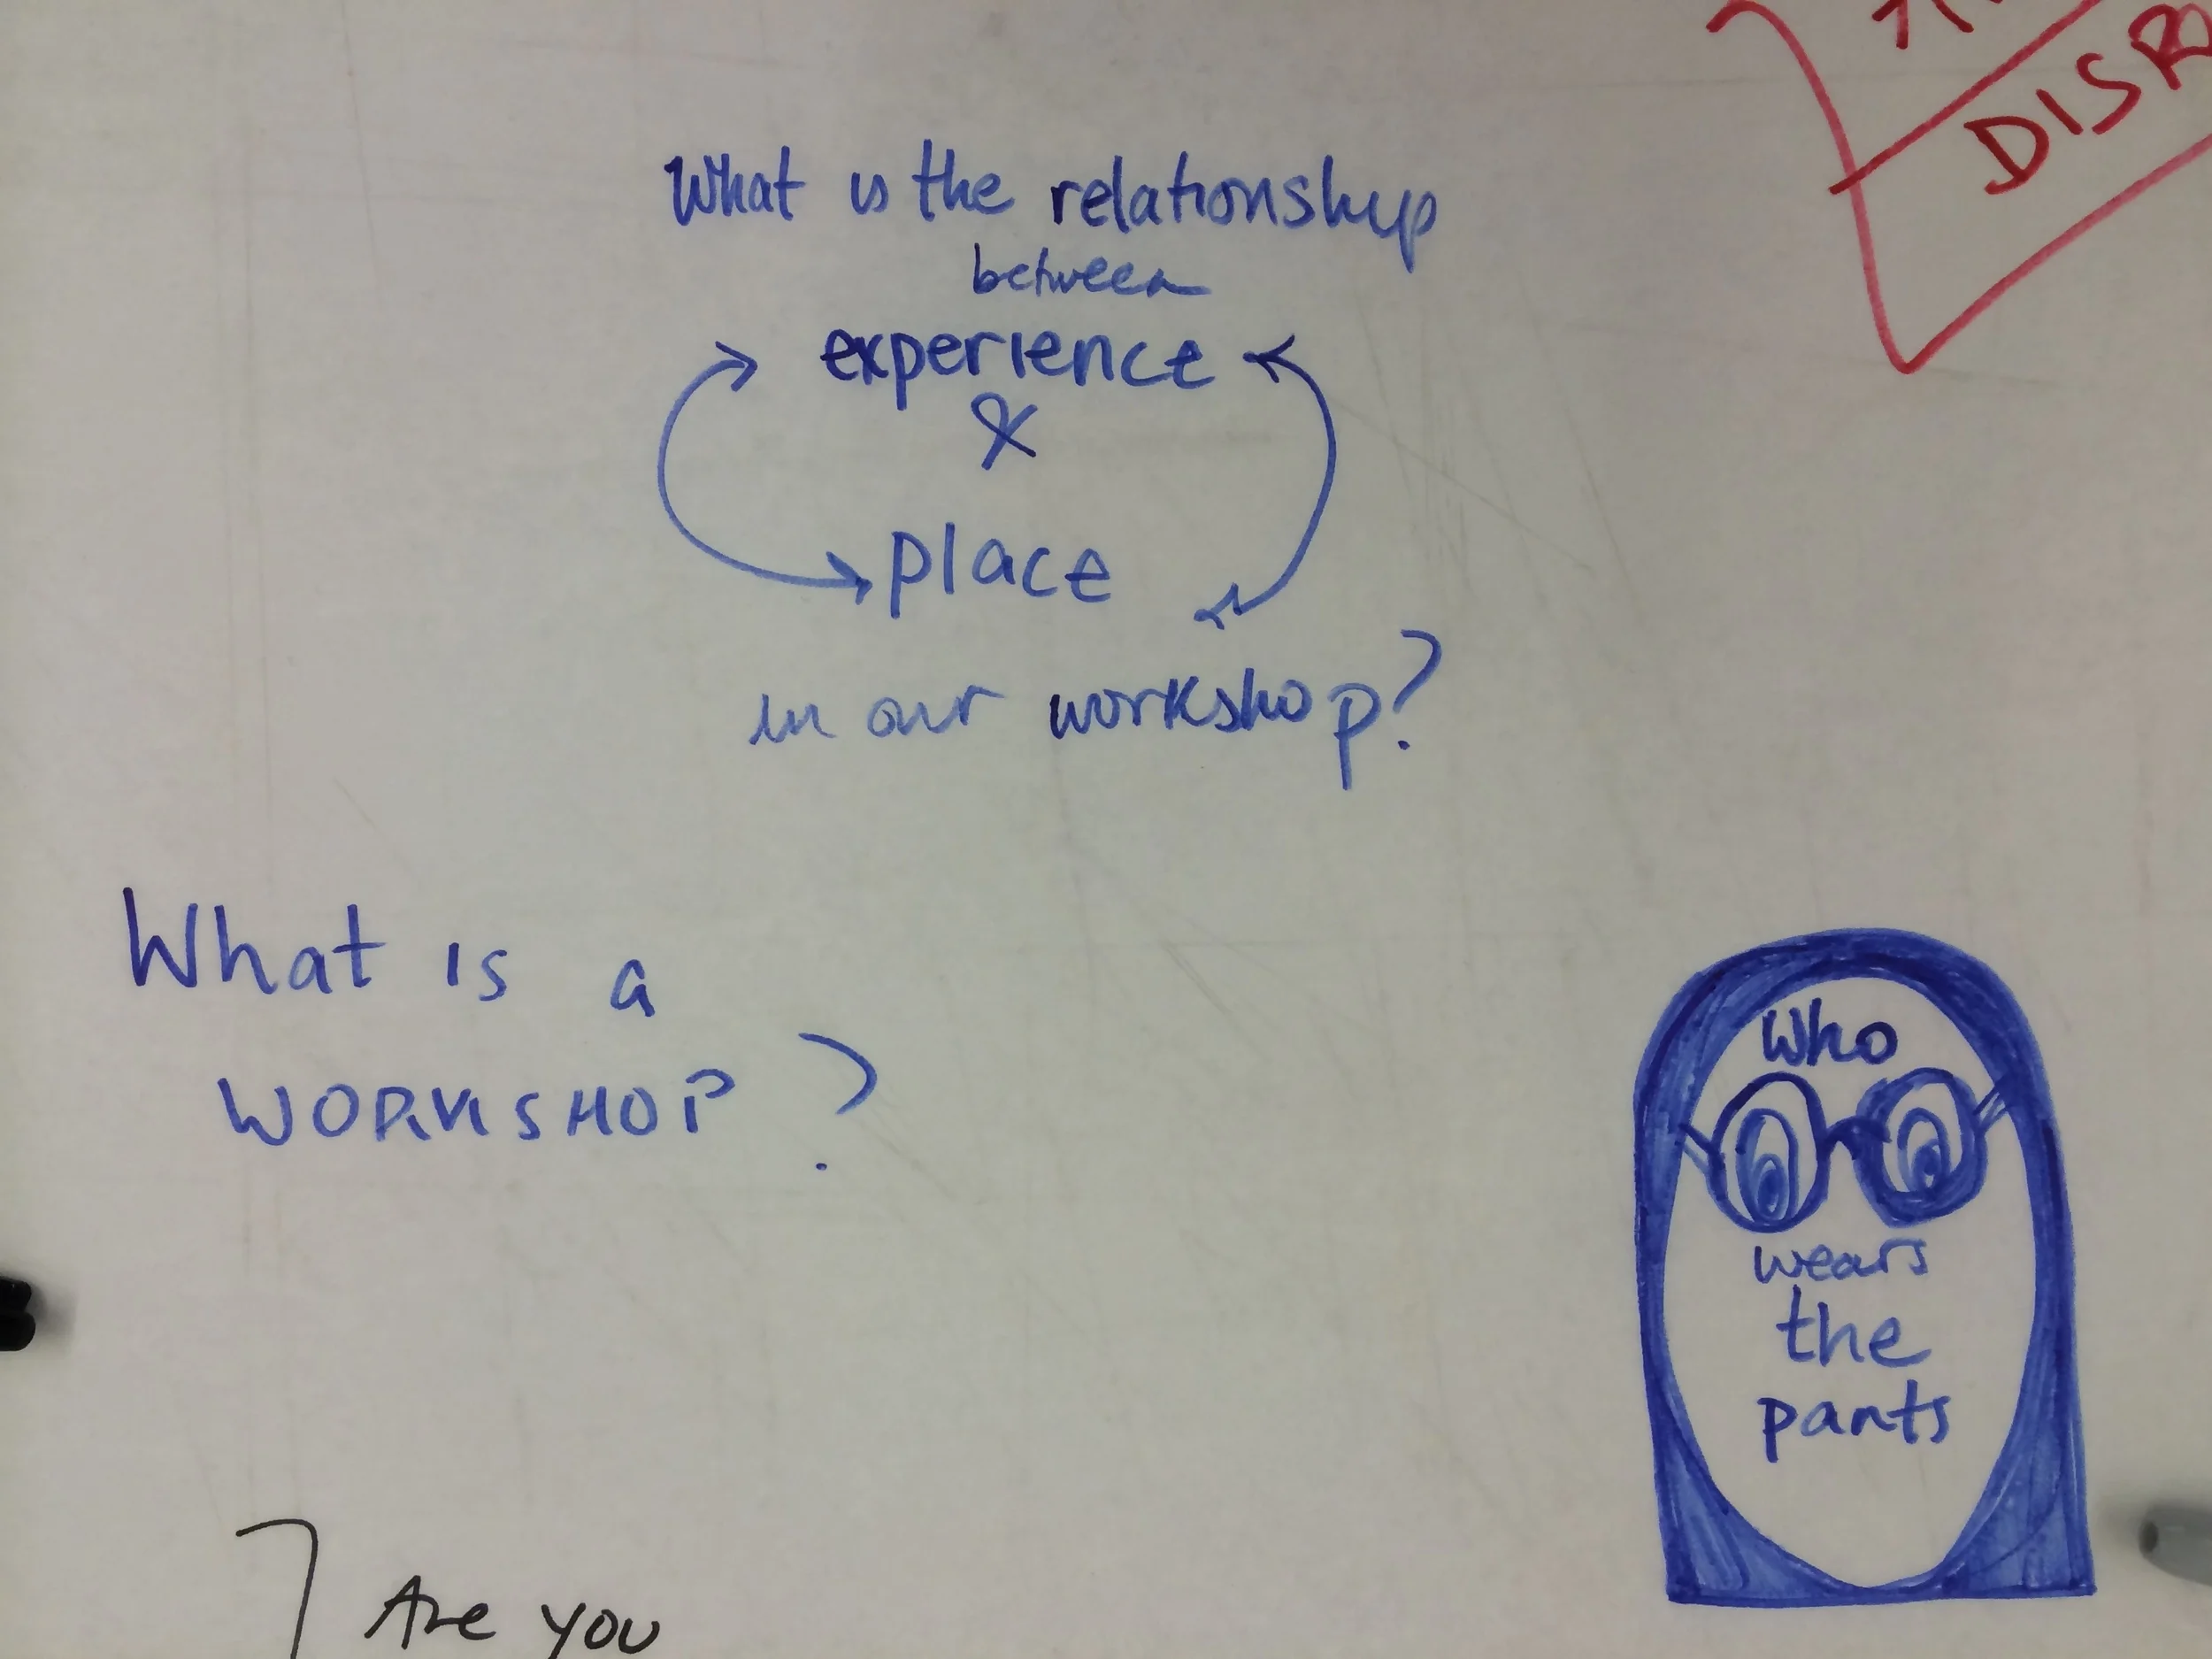 What is the relationship
between
experience
&
place
in our workshop?
DISR
What is a
WORKSHOP?
Who
wears
the
pants
Are you